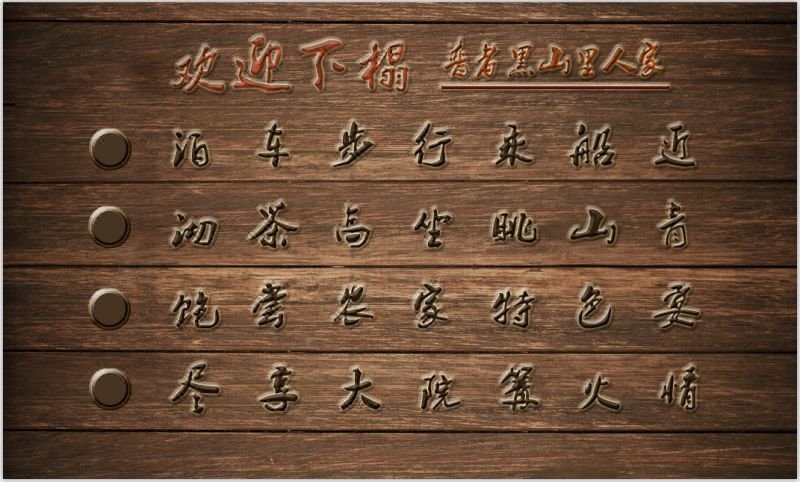 欢迎下榻 普者黑山里人家
泊车步行乘船近
沏茶高坐眺山青
饱尝农家特色宴
尽享大院篝火情